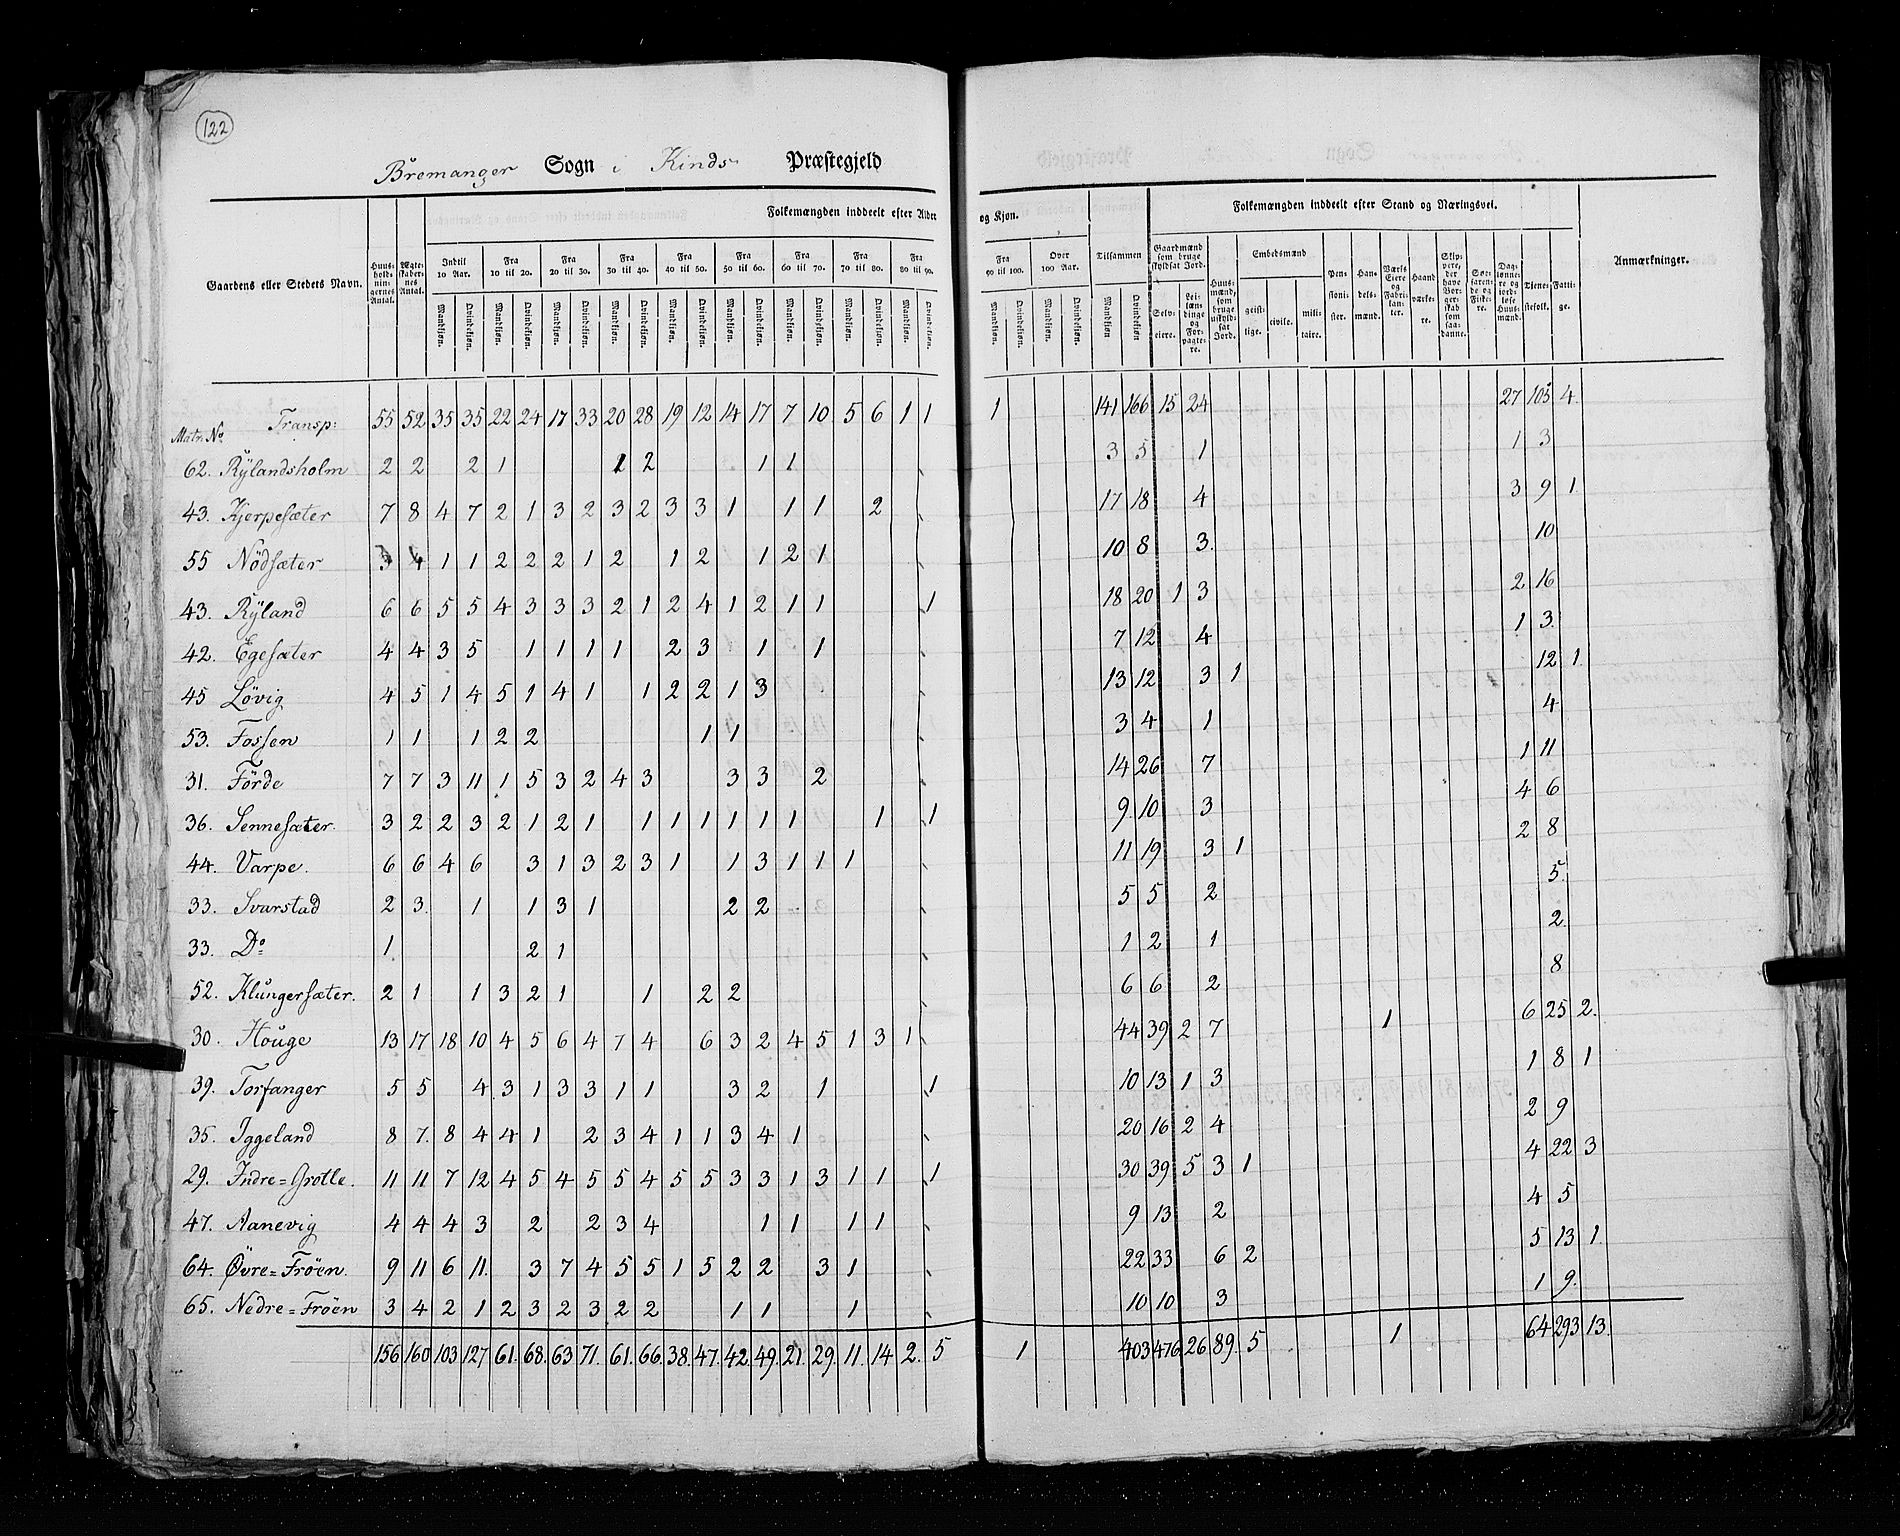 122
Bremanger Sogn i Kinds Præstegjeld
Folkemængden inddeelt efter Alder og Kjøn.
Folkemængden inddeelt efter Stand og Næringsvei.
Gaardens eller Stedets Navn.
Huusholdningernes Antal.
Ægteskabernes Antal.
Indtil 10 Aar.
Fra 10 til 20.
Fra 20 til 30.
Fra 30 til 40.
Fra 40 til 50.
Fra 50 til 60.
Fra 60 til 70.
Fra 70 til 80.
Fra 80 til 90.
Fra 90 til 100.
Over 100 Aar.
Tilsammen
Mandkjøn. Qvindekjøn.
Gaardmænd som bruge skyldsat Jord.
Selveiere.
Leilændinge og Forpagtere.
Huusmænd, som bruge uskyldsat Jord.
Embedsmænd
geistlige. civile. militaire.
Pensionister.
Handelsmænd.
Værks Eiere og Fabrikanter.
Haandværkere.
Skippere, der have Borgerskab som saadanne.
Søfarende og Fiskere.
Daglønnere og jordløse Huusmænd.
Tjenestefolk.
Fattige.
Anmærkninger.
Matr. No Transp: 55 52 35 35 22 24 17 33 20 28 19 12 14 17 7 10 5 6 1 1 1 141 166 15 24 27 105 4
62. Rÿlandsholm 2 2 2 1 1 2 1 1 3 5 1 1 3
43. Kjerpesæter 7 8 4 7 2 1 3 2 3 2 3 3 1 1 1 2 17 18 4 3 9 1
55 Nödsæter 4 1 1 2 2 2 1 2 1 2 1 2 1 10 8 3 10
43. Rÿland 6 6 5 5 4 3 3 3 2 1 2 4 1 2 1 1 1 18 20 1 3 2 16
42. Egesæter 4 4 3 5 1 1 1 1 2 3 1 1 7 12 4 1 3
45 Lövig 4 5 1 4 5 1 4 1 1 2 2 1 3 13 12 3 1 12 1
53. Fossen 1 1 1 2 2 1 1 3 4 1 4
31. Förde 7 7 3 11 1 5 3 2 4 3 3 3 2 14 26 7 1 11
36. Sennesæter. 3 2 2 3 2 1 2 1 1 1 1 1 1 1 1 1 9 10 3 4 6
44. Varpe. 6 6 4 6 3 1 3 2 3 1 1 3 1 1 1 11 19 3 1 2 8
33. Svarstad 2 3 1 1 3 1 2 2 5 5 2 5
33. Do 1 2 1 1 2 1 2
52. Klungersæter. 2 1 1 3 2 1 1 2 2 6 6 2 8
30. Houge 13 17 18 10 4 5 6 4 7 4 6 3 2 4 5 1 3 1 44 39 2 7 1 6 25 2
39. Torfanger 5 5 4 3 1 3 3 1 1 3 2 1 1 10 13 1 3 1 8 1
35. Iggeland 8 7 8 4 4 1 2 3 4 1 1 3 4 1 20 16 2 4 2 9
29. Indre=Grotle. 11 11 7 12 4 5 4 5 5 4 5 5 3 3 1 3 1 1 1 30 39 5 3 1 4 22 3
47. Aanevig 4 4 4 3 2 2 3 4 1 1 1 1 9 13 2 4 5
64. Øvre=Fröen. 9 11 6 11 3 7 4 5 5 1 5 2 2 3 1 22 33 6 2 5 13 1
65. Nedre=Fröen 3 4 2 1 2 3 2 3 2 2 1 1 1 10 10 3 1 9
156 160 103 127 61 68 63 71 61 66 38 47 42 49 21 29 11 14 2 5 1 403 476 26 89 5 1 64 293 13